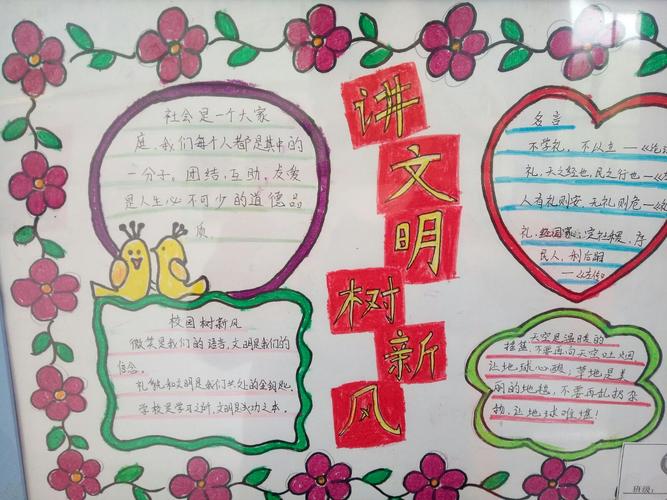 社会是一个大家
庭,我们每个人都是其中的
一分子。团结,互助,友爱
是人生必不可少的道德品
质
讲
文
明
树
新
风
名言
不学礼,不从立——《论
礼,天之经也,民之行也——《左
人有礼则安,无礼则危——《
礼,经国家,定社稷,序
民人,利后嗣
——《左传
校园树新风
微笑是我们的语言,文明是我们的
信念。
礼貌和文明是我们共处的金钥匙。
学校是学习之所,文明是成功之本.
天空是温暖的
摇篮,不要再向天空吐烟
让地球心醒;草地是美
丽的地毯,不要再乱扔杂
物,让地球难堪!
班级: